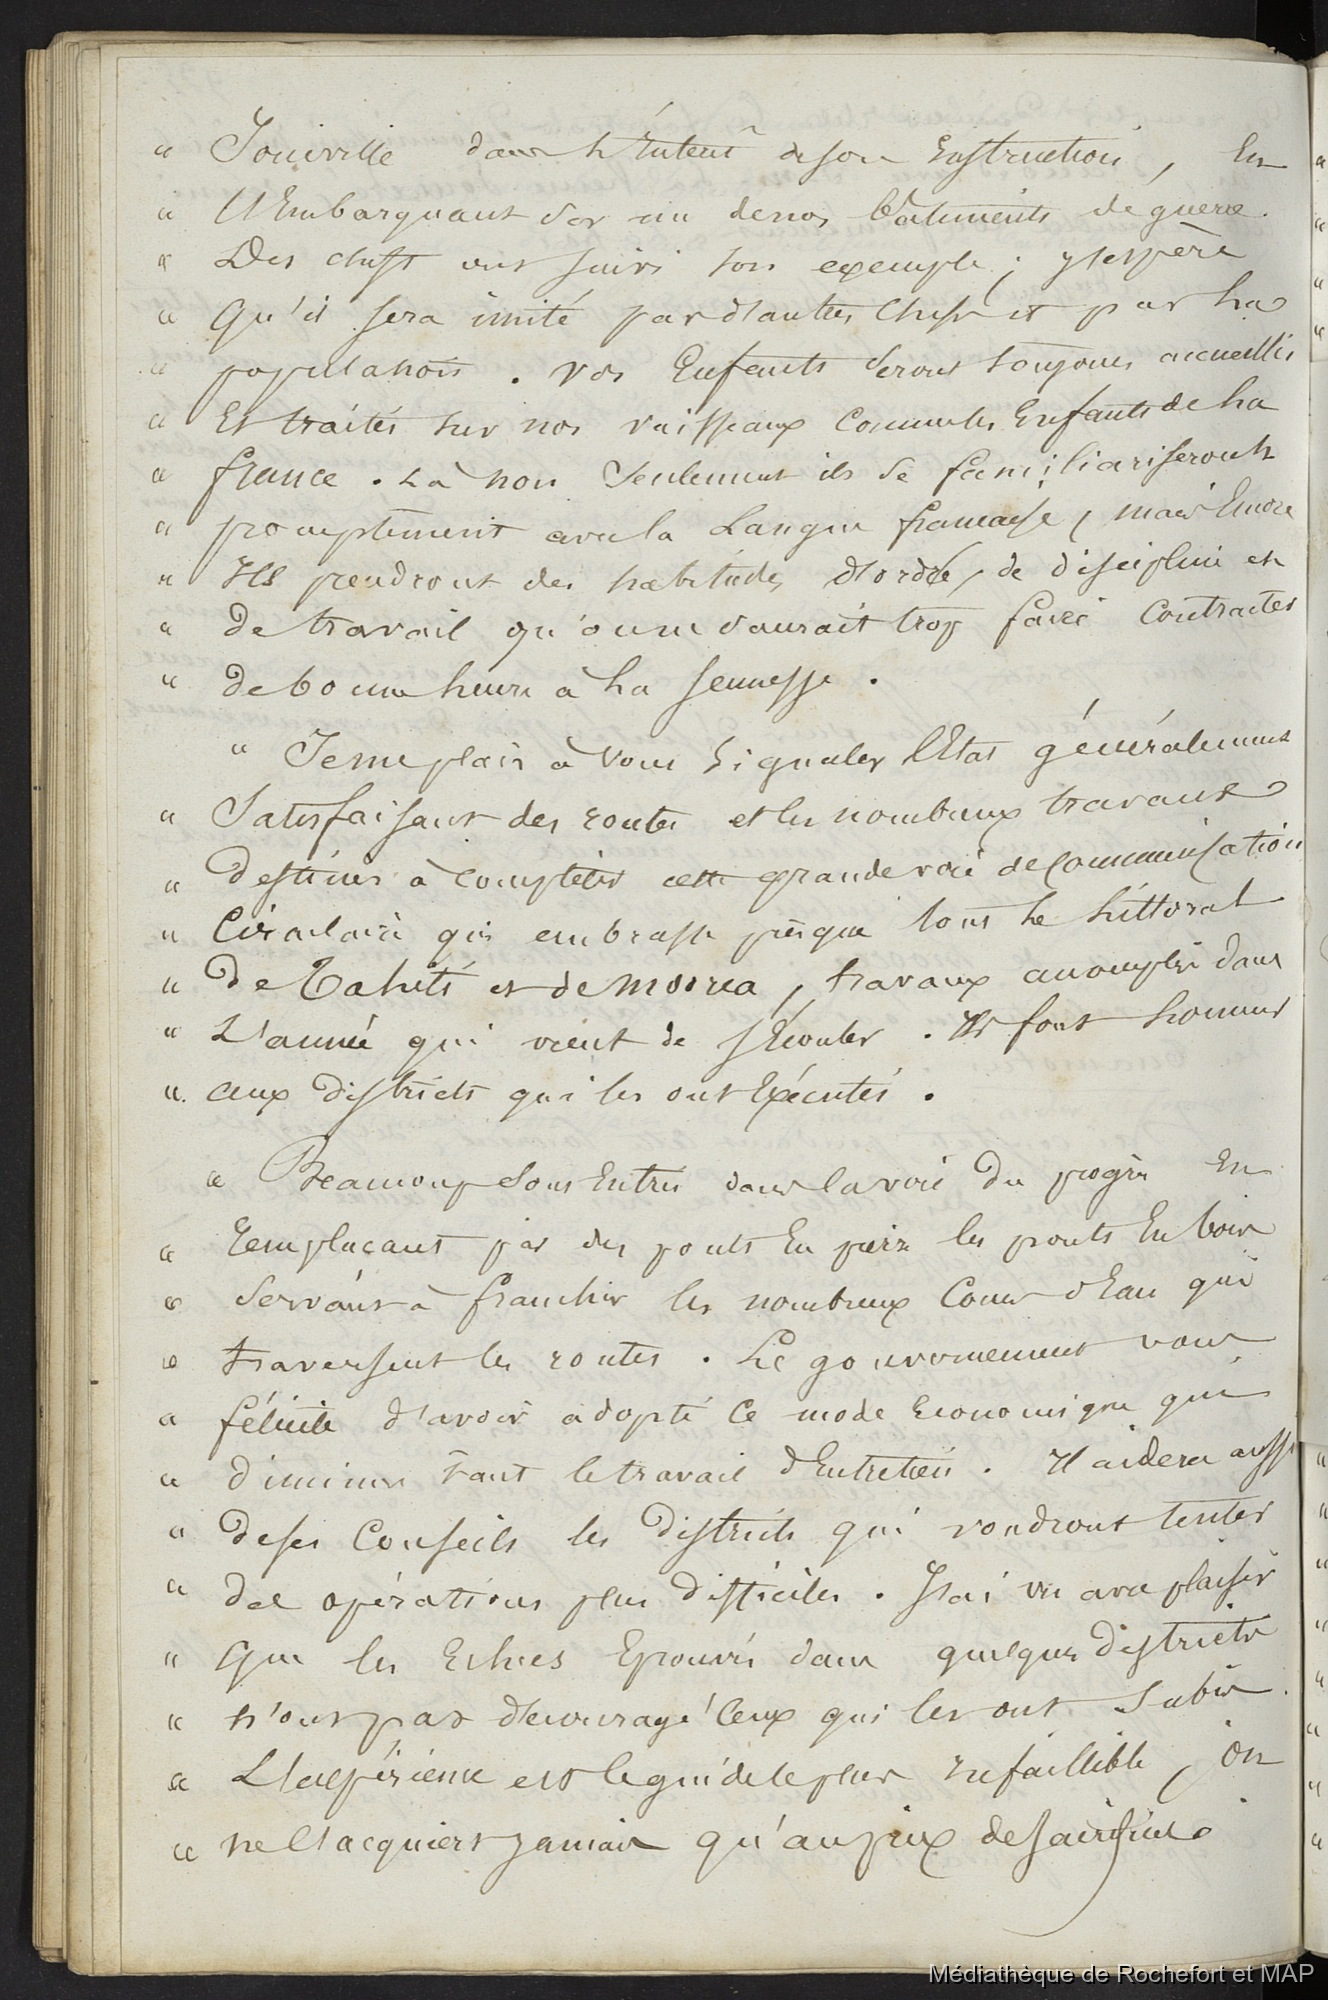 " Joinville dans l'intérêt de son instruction, en
" l'Embarquant sur un de nos bâtiments de guerre.
" Des chefs ont suivi son exemple ; j'espère
" Qu'il sera imité par d'autres Chefs et par la
" population. Vos Enfants seront toujours accueillis
" Et traités sur nos vaisseaux comme les Enfants de la
" france. Là non seulement ils se familiariseront
" promptement avec la Langue française, mais Encore
" Ils prendront des habitudes d'ordre, de discipline et
" de travail qu'on ne saurait trop faire contracter
" de bonne heure à la Jeunesse.
" Je me plais à vous signaler l'Etat généralement
" Satisfaisant des routes et les nombreux travaux
" Destinés à compléter cette grande voie de communication
" Circulaire qui embrasse presque tout le Littoral
" De Tahiti et de moorea, travaux accomplis dans
" L'année qui vient de s'Ecouler. Ils font honneur
" aux districts qui les ont Exécutés.
" Beaucoup sont Entrés dans la voie Du progrès En
" remplaçant par des ponts En pierre les ponts En bois
" Servant à franchir les nombreux Cours d'Eau qui
" traversent les routes. Le gouvernement vous
" félicite d'avoir adopté ce mode Economique qui
" diminue tant le travail d'Entretien. Il aidera aussi
" de ses Conseils les Districts qui voudront tenter
" des opérations plus Difficiles. J'ai vu avec plaisir
" Que les Echecs Eprouvés dans quelques Districts
" n'ont pas découragé Ceux qui les ont subis.
" L'expérience est le guide le plus infaillible, on
" ne l'acquiert jamais qu'au prix de sacrifices.
Médiathèque de Rochefort et MAP